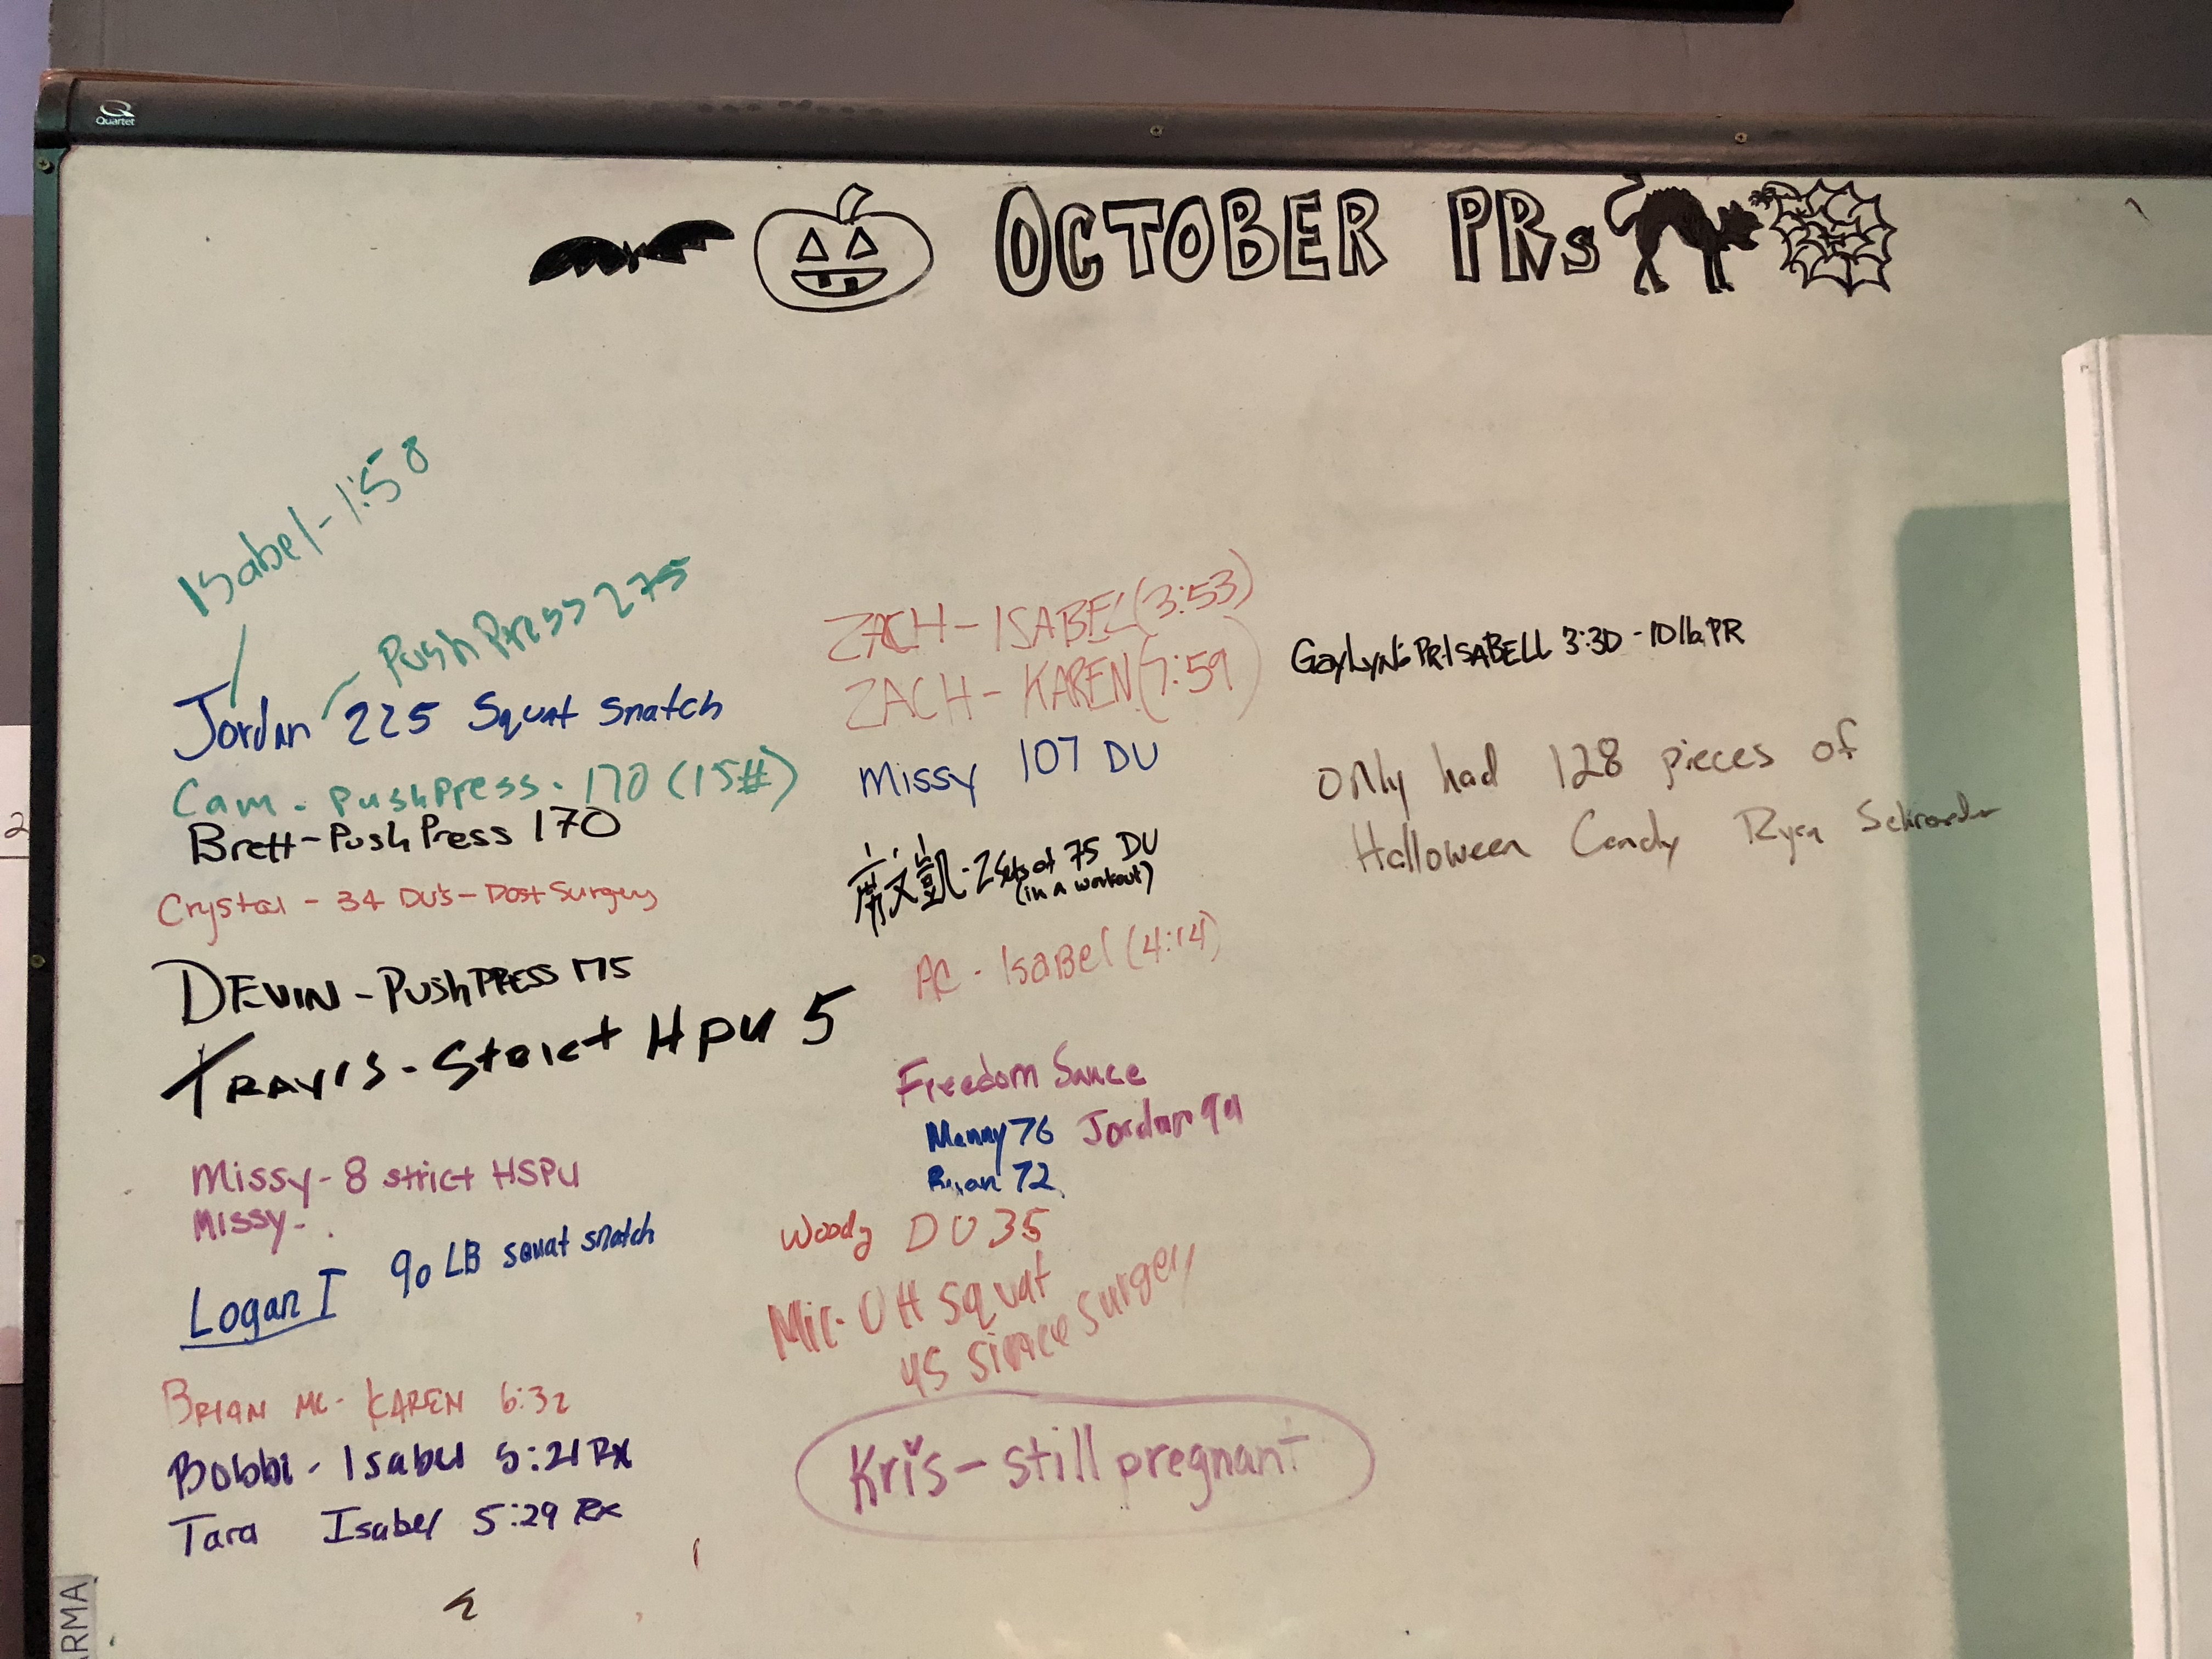 Quartet
OCTOBER PRs
Isabel - 1:58
Push Press 275
Jordan 225 Squat Snatch
Cam - Push Press - 170 (15#)
Brett - Push Press 170
Crystal - 34 DU's - Post Surgery
DEVIN - PUSH PRESS 175
TRAVIS - Strict HPU 5
Missy - 8 strict HSPU
Missy -
Logan I 90 LB squat snatch
BRIAN MC - KAREN 6:32
Bobbi - Isabel 5:21 RX
Tara Isabel 5:29 Rx
ZACH - ISABEL (3:53)
ZACH - KAREN (7:59)
Missy 107 DU
文凱 - 2 sets of 75 DU
(in a workout)
AC - Isabel (4:14)
Freedom Sauce
Manny 76 Jordan 99
Brian 72
Woody DU 35
Mic - OH Squat
45 since surgery
Kris - still pregnant
GayLyn: PR ISABELL 3:30 - 10 lb PR
only had 128 pieces of
Halloween Candy Ryan Schroeder
2
ARMA